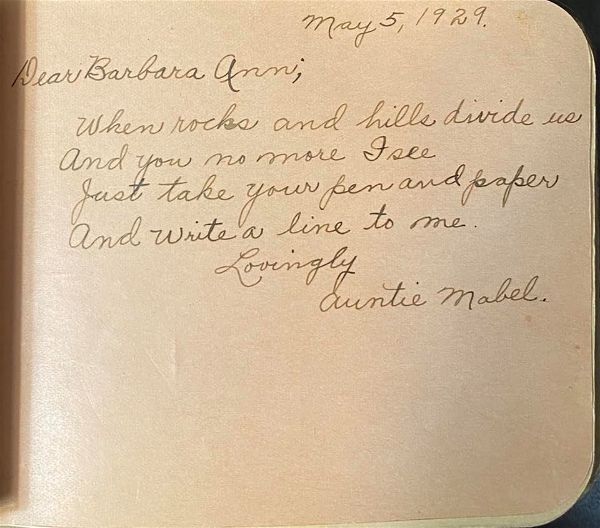 May 5, 1929.
Dear Barbara Ann;
When rocks and hills divide us
And you no more I see
Just take your pen and paper
And write a line to me.
Lovingly
Auntie Mabel.